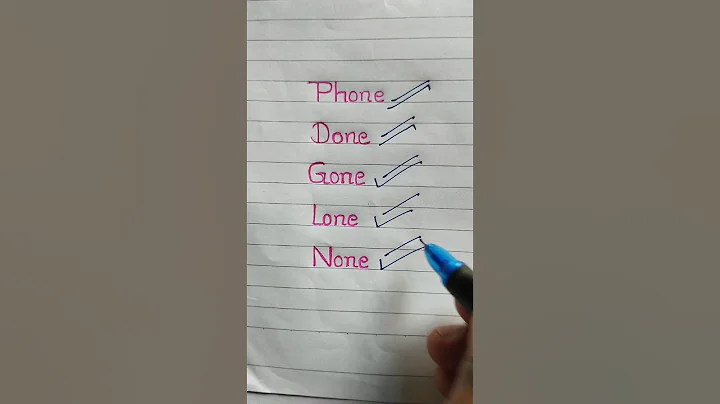 Phone
Done
Gone
Lone
None